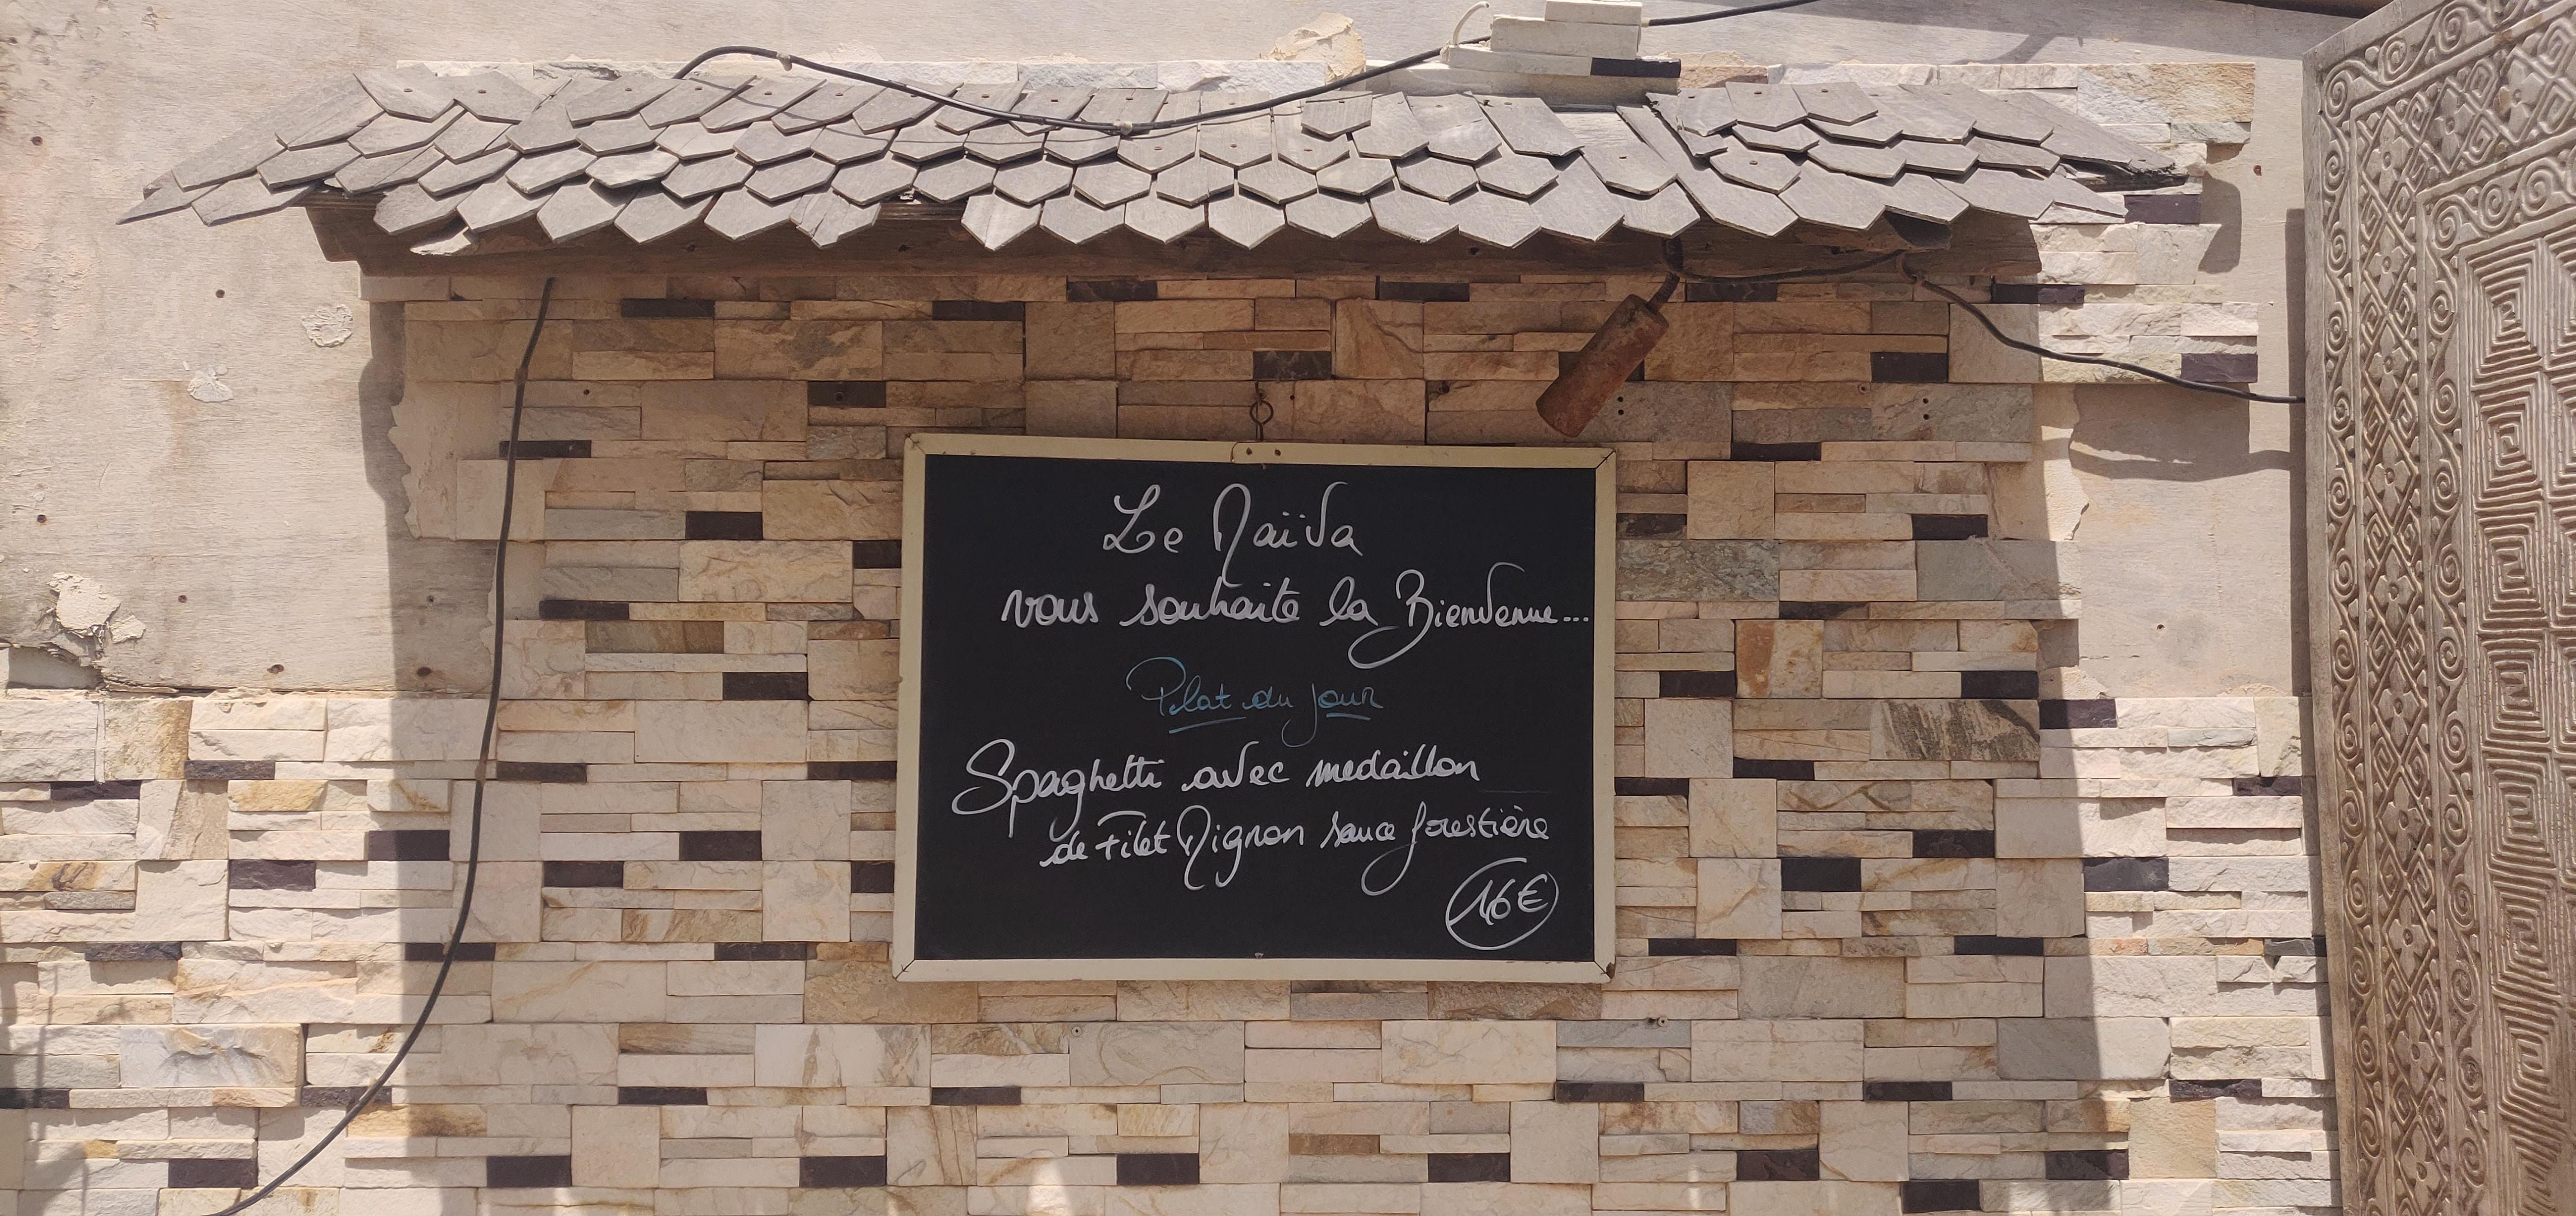 Le Naïva
vous souhaite la Bienvenue...
Plat du jour
Spaghetti avec medaillon
de Filet Mignon sauce forestière
16€